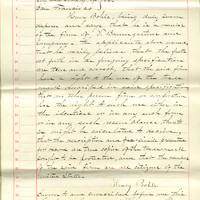 San Francisco
Henry Bohls, being duly sworn
deposes and says that he is a member
of the firm of
Company, the applicants above named,
that the facts set
forth in the foregoing specification
are true and correct, that the said firm
have a right to the use of the trade
mark described in said specification
that no other person firm or corporation
has the right to such use either in
the identical or in any such form
or in any such near resemblance that
as might be calculated to deceive,
that the description and facsimiles presented
for record are true copies of the trademark
sought to be protected, and that the members
of the said firm are all citizens of the
United States.
Henry Bohls
Sworn to and subscribed before me this